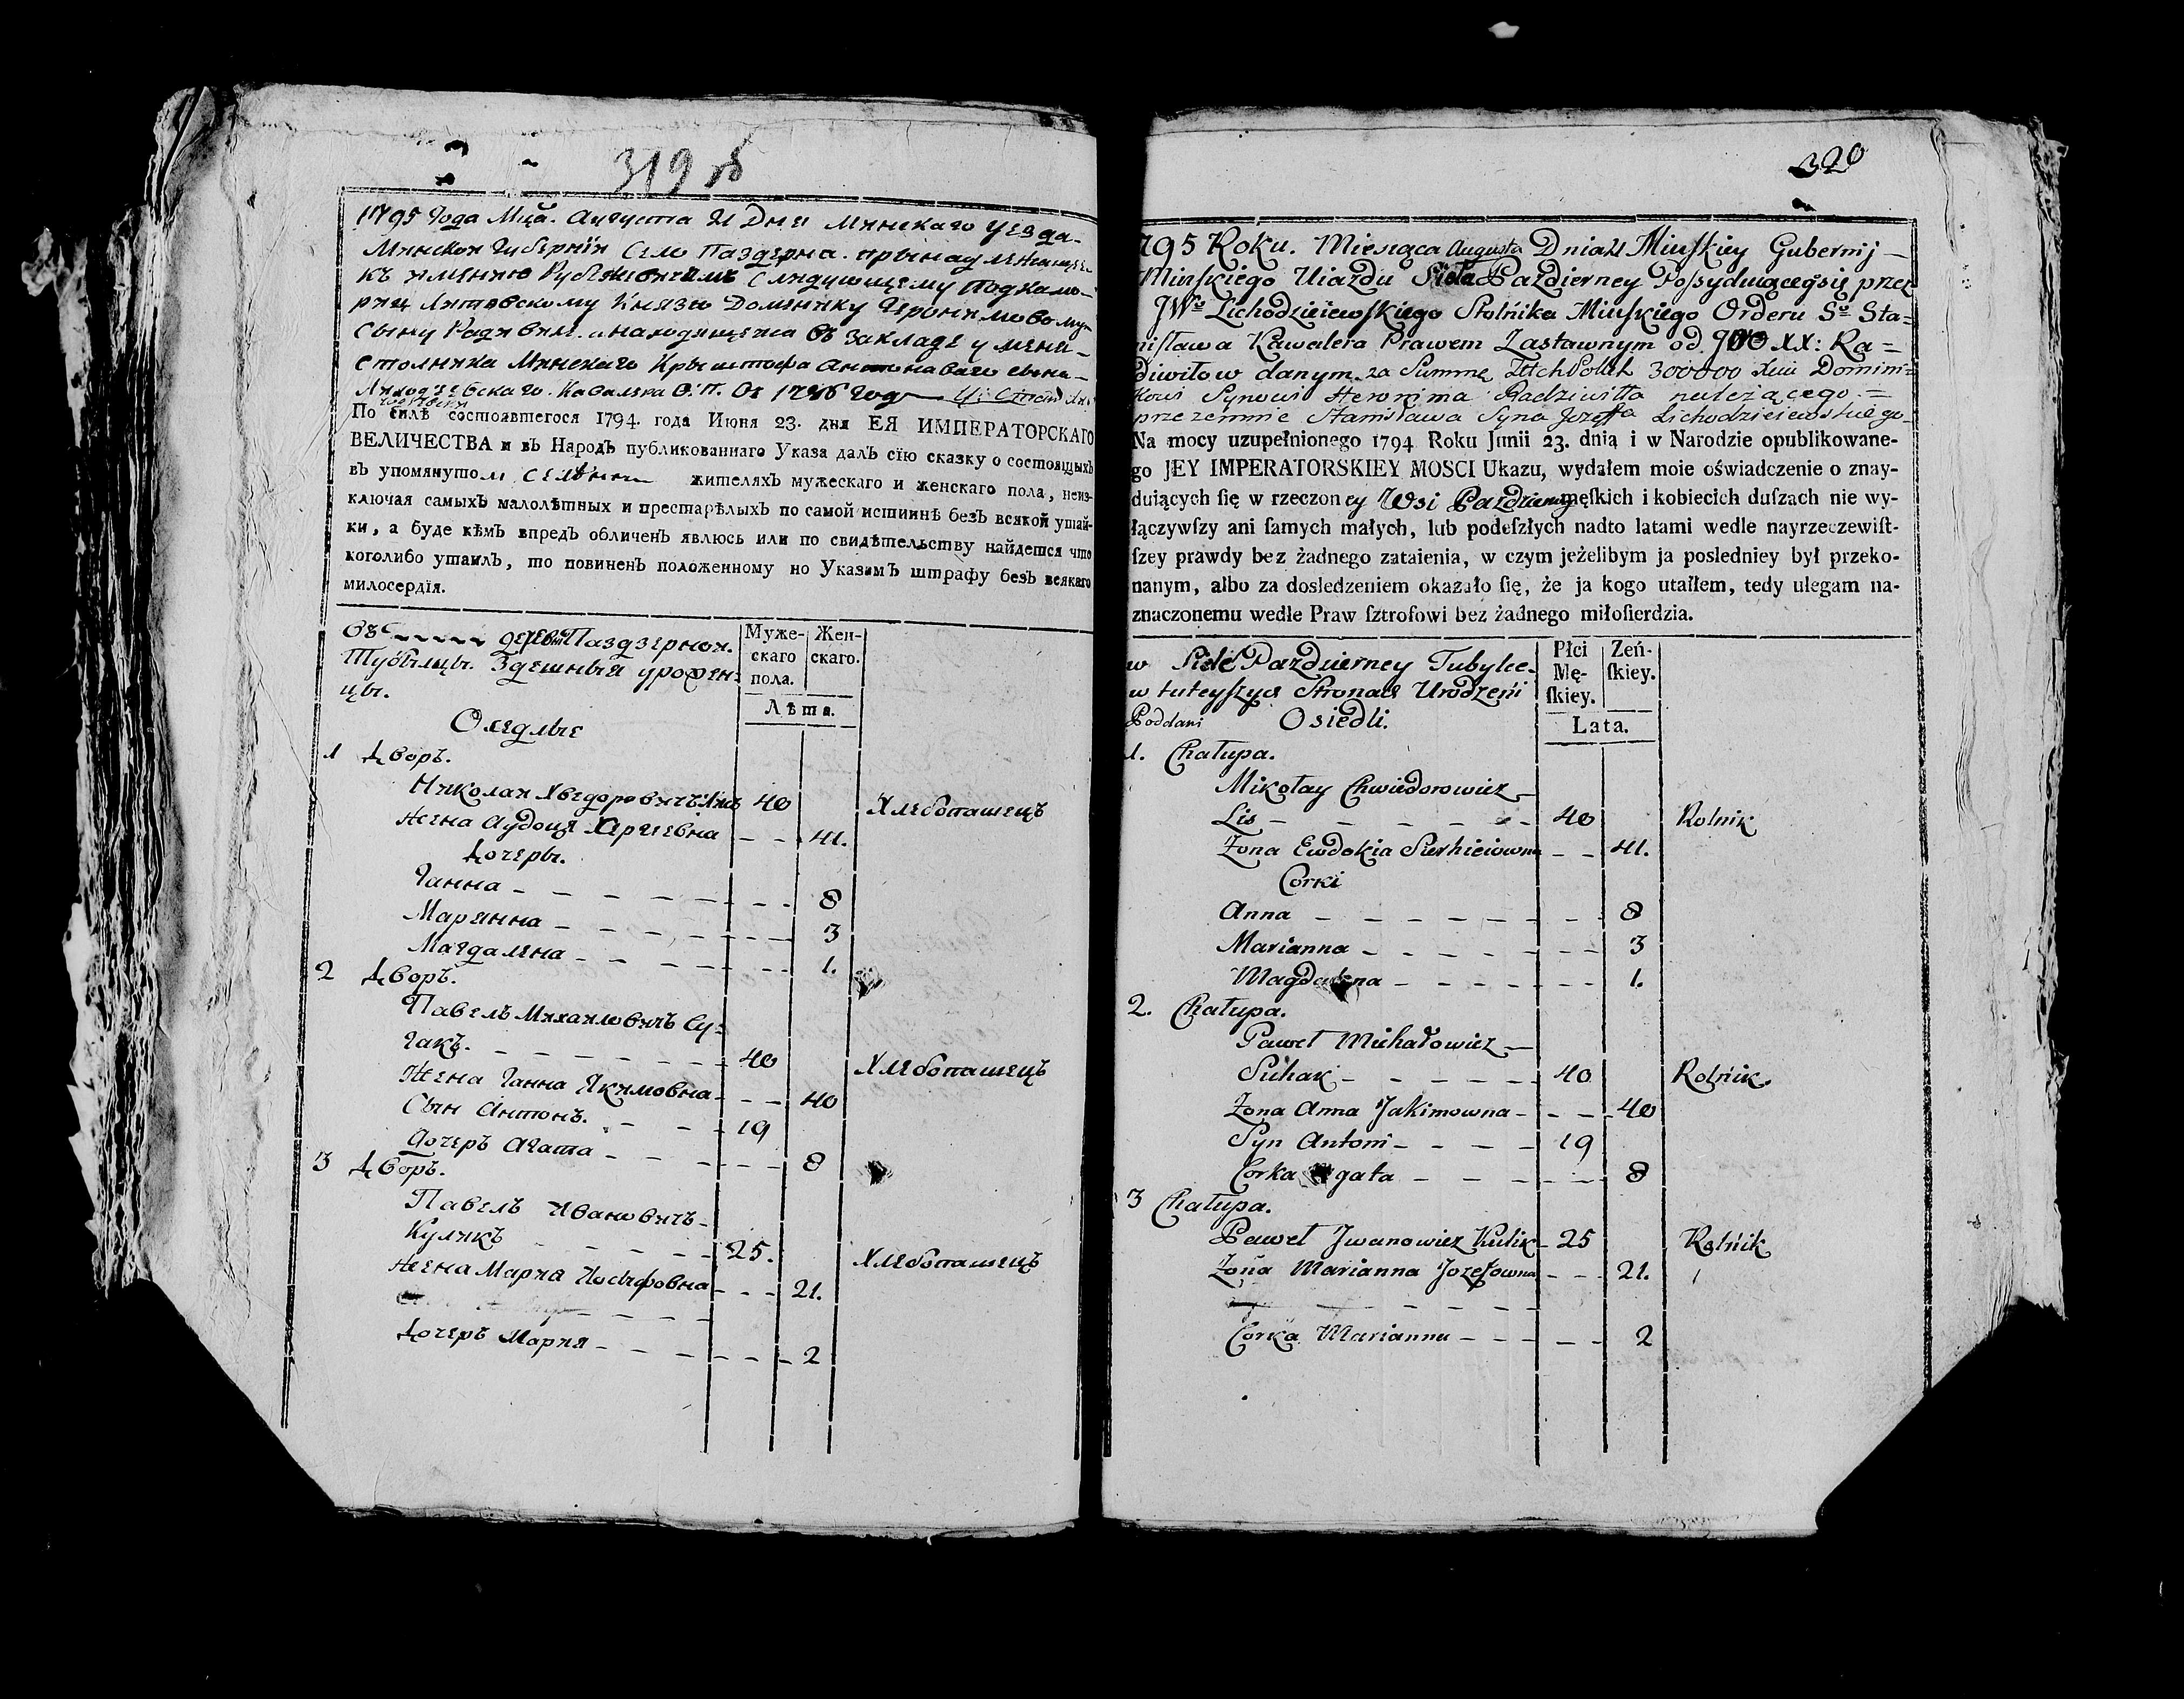 319 об
1795 Года Мца. Августа 21 Дня Минскаго уезда
Минской Губернїи Село Паздерна. принадлежащее
къ имению
рию Литовскому Князю Доминику Иеронимовому
Сыну Радивил. а находящегося въ закладе у меня
столника Минскаго Крыштофа Антонаваго сына
Лиходзѣевскаго. Кавалера О. П. От 17 Году
По силѣ состоявшегося 1794. года Июня 23. дня ЕЯ ИМПЕРАТОРСКАГО
ВЕЛИЧЕСТВА и въ Народъ публикованнаго Указа далъ сїю сказку о состоящыхъ
въ упомянутом жителяхъ мужескаго и женскаго пола, неиз-
ключая самыхъ малолѣтныхъ и престарѣлыхъ по самой истиннѣ безъ всякой утай-
ки, а буде кѣмъ впредъ обличенъ явлюсь или по свидѣтельству найдется что
коголибо утаилъ, то повиненъ положенному по Указамъ штрафу безъ всякаго
милосердїя.
Въ деревни Паздзерной.
Тубылцы. Здешныя урожен-
цы.
Оседлые
Муже-
скаго
пола.
Жен-
скаго.
Лѣта.
1 Дворъ.
Николай Хведоровичъ Лисъ 40 Хлебопашецъ
Жена Аудоця Сергиевна - - 41.
Дочеры.
Ганна - - - - 8
Марянна - - - - 3
Магдалена - - - - 1.
2 Дворъ.
Павелъ Михаиловичъ Су-
гакъ. - - - - 40 Хлебопашецъ
Жена Ганна Якимовна - - - 40
Сын Антонъ. - - - 19
Дочеръ Агата - - - - 8
3 Дворъ.
Павелъ Ивановичъ -
Куликъ - - - - 25. Хлебопашецъ
Жена Мария Иосифовна - - - 21.
Дочеръ Мария - - - - 2
320
1795 Roku. Miesiąca Augusta Dnia 21 Minſkiey Gubernij —
Minſkiego Uiazdu Sioła Pazdzierney Poſsyduiącegosię przez
JWo Lichodzieiewſkiego Stolnika Minſkiego Orderu So Sta=
niſława Kawalera Prawem Zastawnym od XX: Ra=
diwiłow danym. za Summę 300000 Domini=
kowi Synowi Heronima Radziwiłła należącego =
przezemnie Stanisława Syna Jozeffa Lichodzieiewskiego
Na mocy uzupełnionego 1794 Roku Junii 23. dnią i w Narodzie opublikowane-
go JEY IMPERATORSKIEY MOSCI Ukazu, wydałem moie oświadczenie o znay-
duiących ſię w rzeczoney Wsi Pazdzierney męſkich i kobiecich duſzach nie wy-
łączywſzy ani ſamych małych, lub podeſzłych nadto latami wedle nayrzeczewiſt-
ſzey prawdy bez żadnego zataienia, w czym jeżelibym ja posledniey był przeko-
nanym, albo za dosledzeniem okazało ſię, że ja kogo utaiłem, tedy ulegam na-
znaczonemu wedle Praw ſztrofowi bez żadnego miłoſierdzia.
w Siele Pazdzierney Tubylce
w tuteyſzych Stronach Urodzeni
Poddani Osiedli.
Płci
Mę-
ſkiey.
Zeń-
ſkiey.
Lata.
1. Chałupa.
Mikołay Chwiedorowicz —
Lis - - - - - 40 Rolnik
Żona Ewdokia Sierhieiowna - - 41.
Corki
Anna - - - - 8
Marianna - - - - 3
Magdalena - - - - 1.
2. Chałupa.
Paweł Michałowicz —
Suhak - - - - 40 Rolnik
Żona Anna Jakimowna - - - 40
Syn Antoni - - - - 19
Corka Agata - - - - 8
3 Chałupa.
Paweł Jwanowicz Kulik - 25 Rolnik
Żona Marianna Jozefowna - - - 21.
Corka Marianna - - - - 2